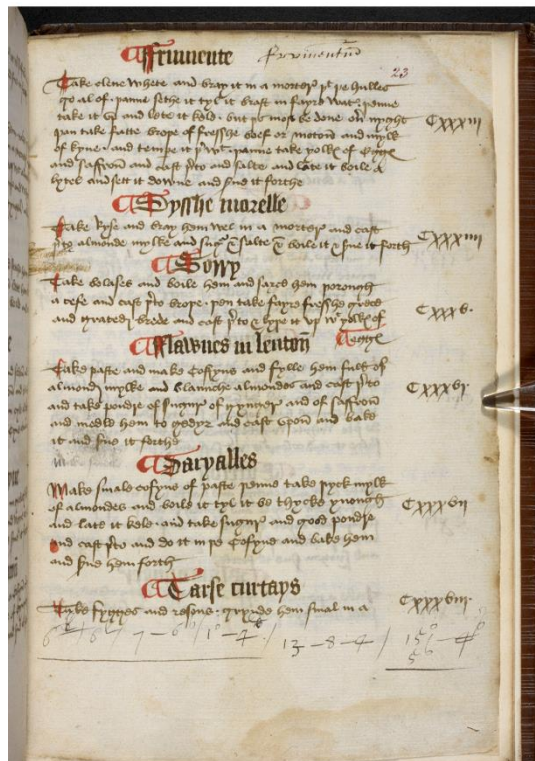 ffrumente frumentū
23
Take clene whete and bray it in a morter þt þe hulles
go al of. þanne sethe it tyl it brest in fayre wat. þenne
take it up and lete it kele. but þis most be done on nyght
þan take fatte broþe of fressche beef or moton and mylk
of kyne. and tempe it þwt. þanne take yolkes of Eyren
and saffron and cast þto and salte and late it boile a
lytel and sett it downe and sue it forthe
Cxxxiii
Dyssche morelle
Take Ryse and bray hem wel in a morter and cast
þto almonde mylke and sugre & salte & boile it & sue it forth
Cxxxiiii
Sorry
Take and boile hem and sarce hem þorough
a and cast þto broþe. þen take fayre fressche
and grated brede and cast þto & lype it vp wt yolkes of
Eyren
Cxxxv.
fflawnes in lenton
Take paste and make Cofyns and fylle hem full of
almond mylke and blaunche almondes and cast þto
and take poudre of sugur of gynger and of saffron
and medle hem to gedyr and cast upon and bake
it and sue it forthe
Cxxxvi
Daryalles
Make smale cofyns of paste þenne take þyck mylk
of almondes and boile it tyl it be thycke ynough
and late it kele. and take sugur and good poudre
and cast þto and do it in þe Cofyns and bake hem
and sue hem forth
Cxxxvii
Tarse curtays
Take fygges and resons. grynde hem smal in a
Cxxxviii.
13 – 8 – 4